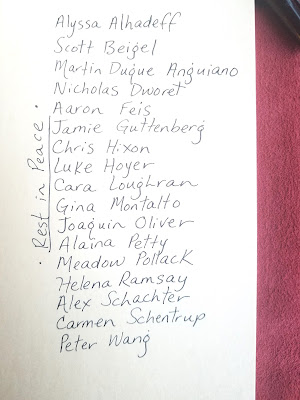 Alyssa Alhadeff
Scott Beigel
Martin Duque Anguiano
Nicholas Dworet
Aaron Feis
Jamie Guttenberg
Chris Hixon
Luke Hoyer
Cara Loughran
Gina Montalto
Joaquin Oliver
Alaina Petty
Meadow Pollack
Helena Ramsay
Alex Schachter
Carmen Schentrup
Peter Wang
· Rest in Peace ·